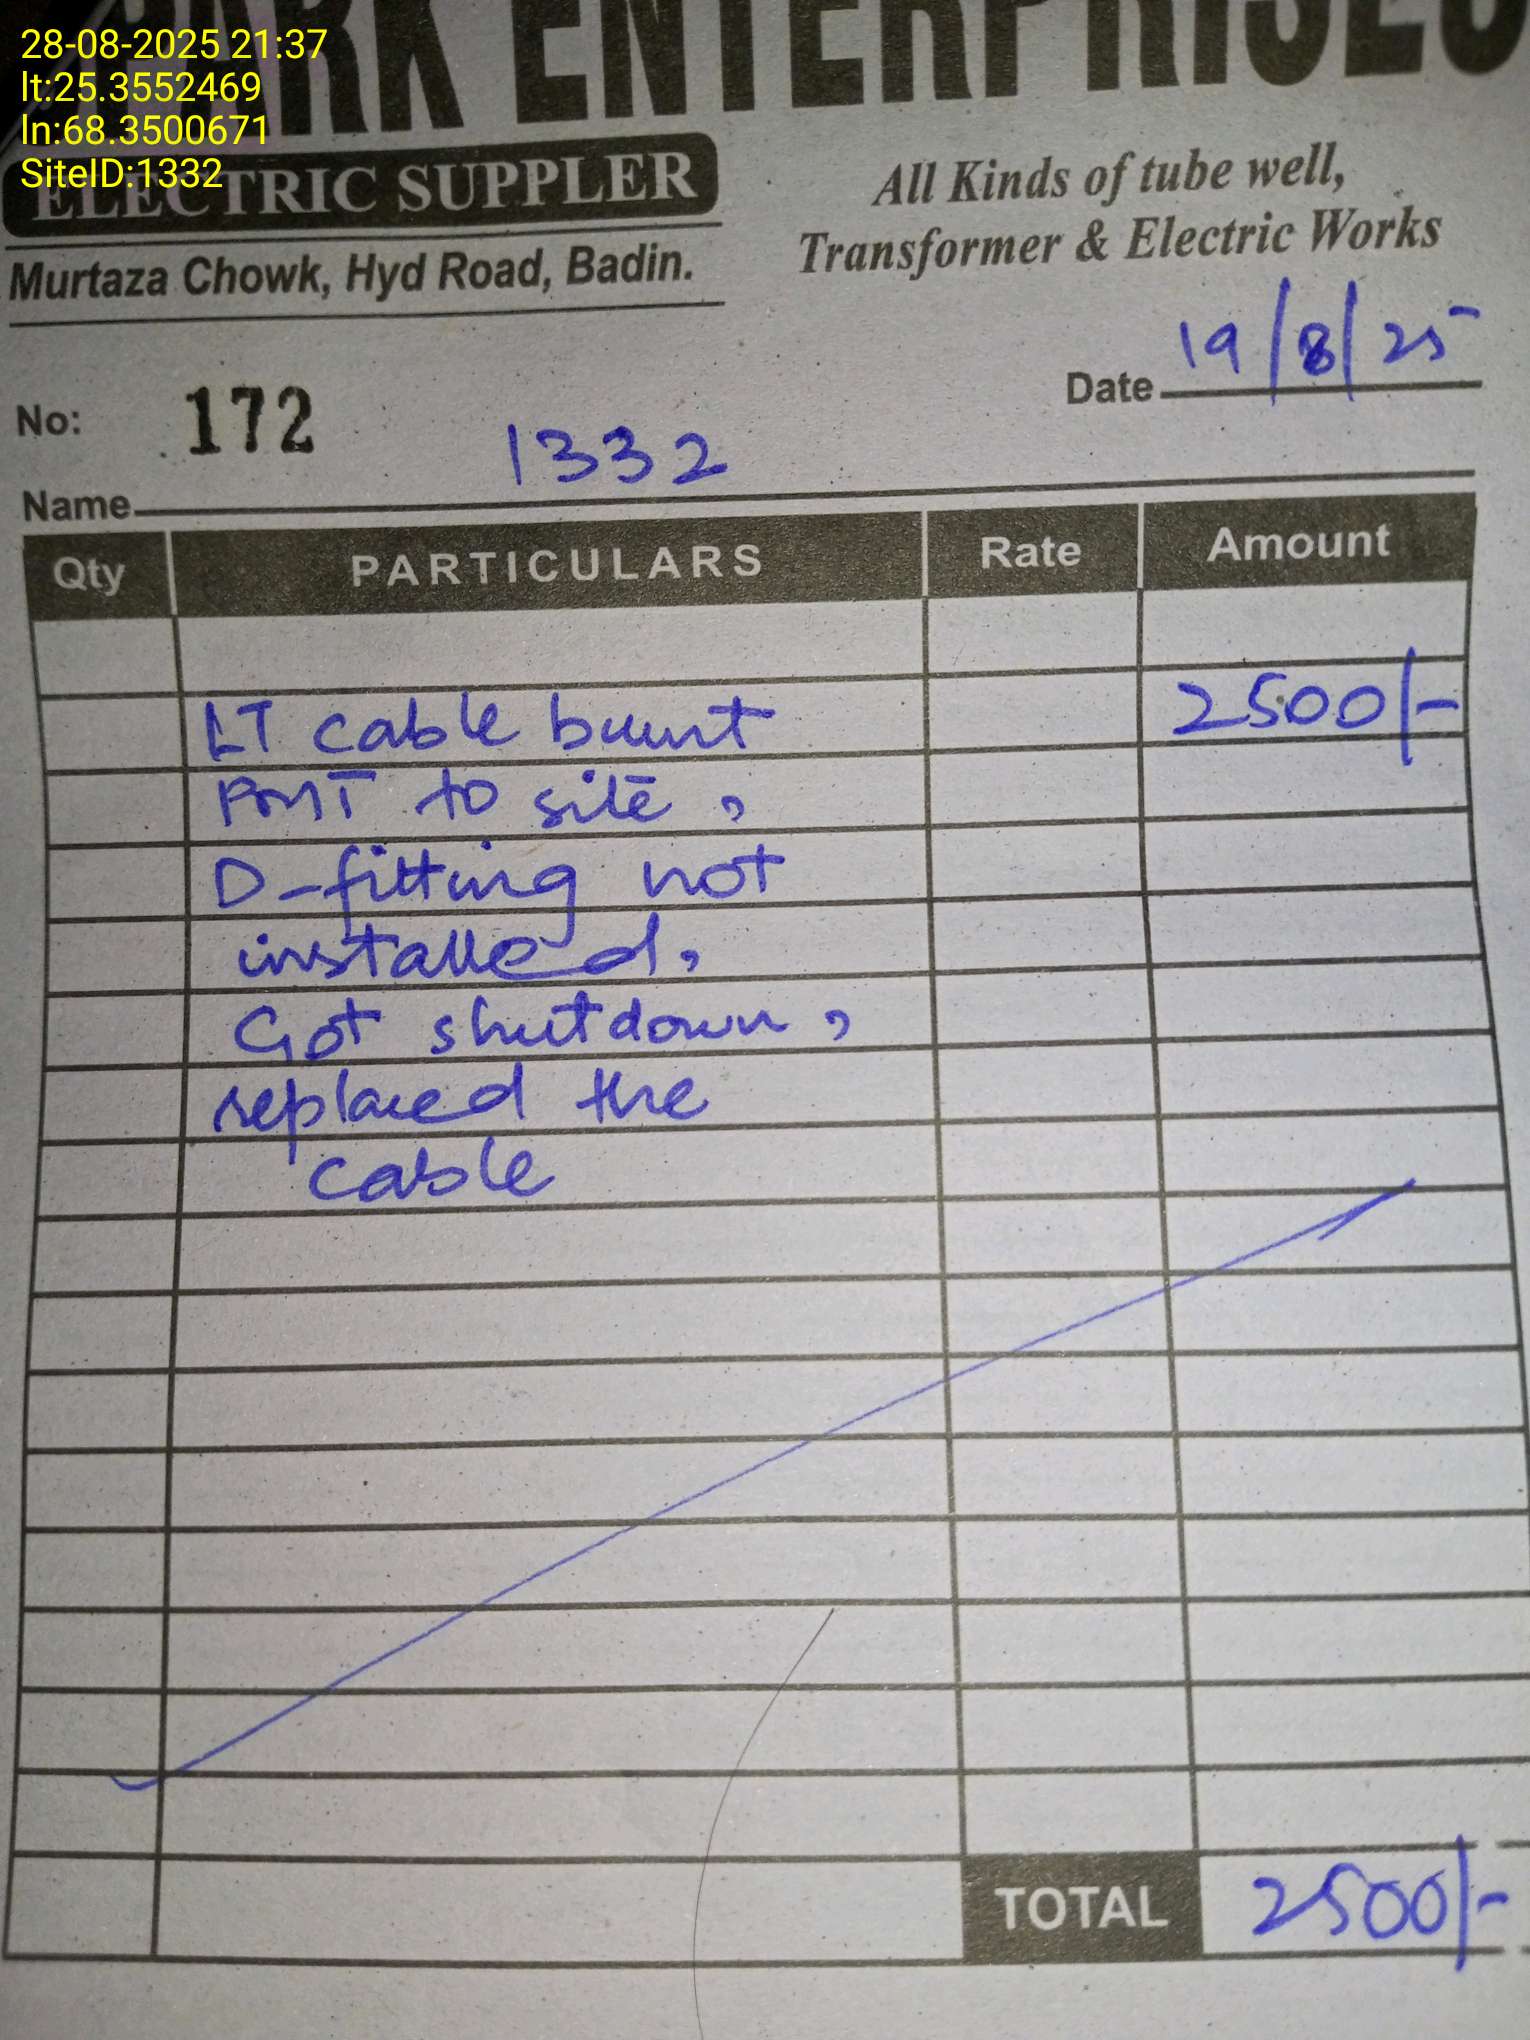 28-08-2025 21:37
lt:25.3552469
ln:68.3500671
SiteID:1332
ENTERPRISES
ELECTRIC SUPPLER
Murtaza Chowk, Hyd Road, Badin.
All Kinds of tube well,
Transformer & Electric Works
No: 172
Date 19/8/25
Name 1332
Qty PARTICULARS Rate Amount
LT cable buunt 2500/-
PMT to site,
D-fitting not
installed,
Got shutdown,
replaced the
cable
TOTAL 2500/-